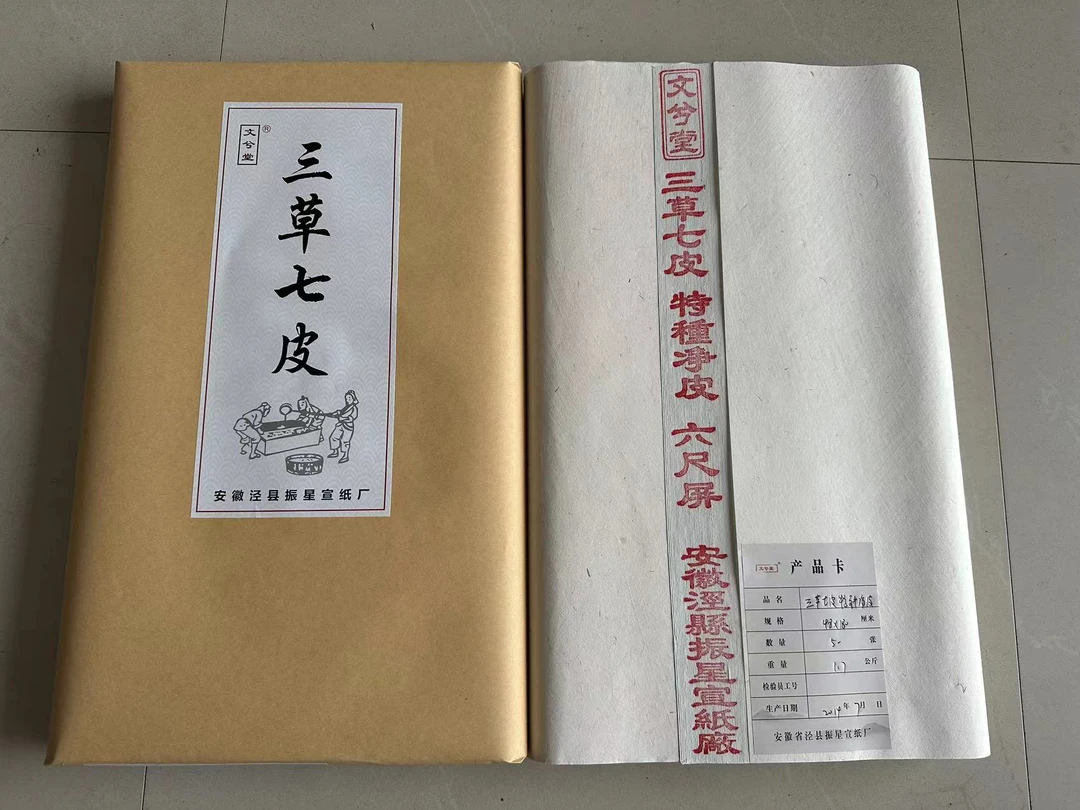 文兮堂®
三草七皮
安徽泾县振星宣纸厂
文兮堂
三草七皮 特種净皮 六尺屏 安徽涇縣振星宣紙廠
文兮堂® 产品卡
品名 三草七皮特种净皮
规格 厘米
数量 张
重量 1.7 公斤
检验员工号
生产日期 2014年7月 日
安徽省泾县振星宣纸厂